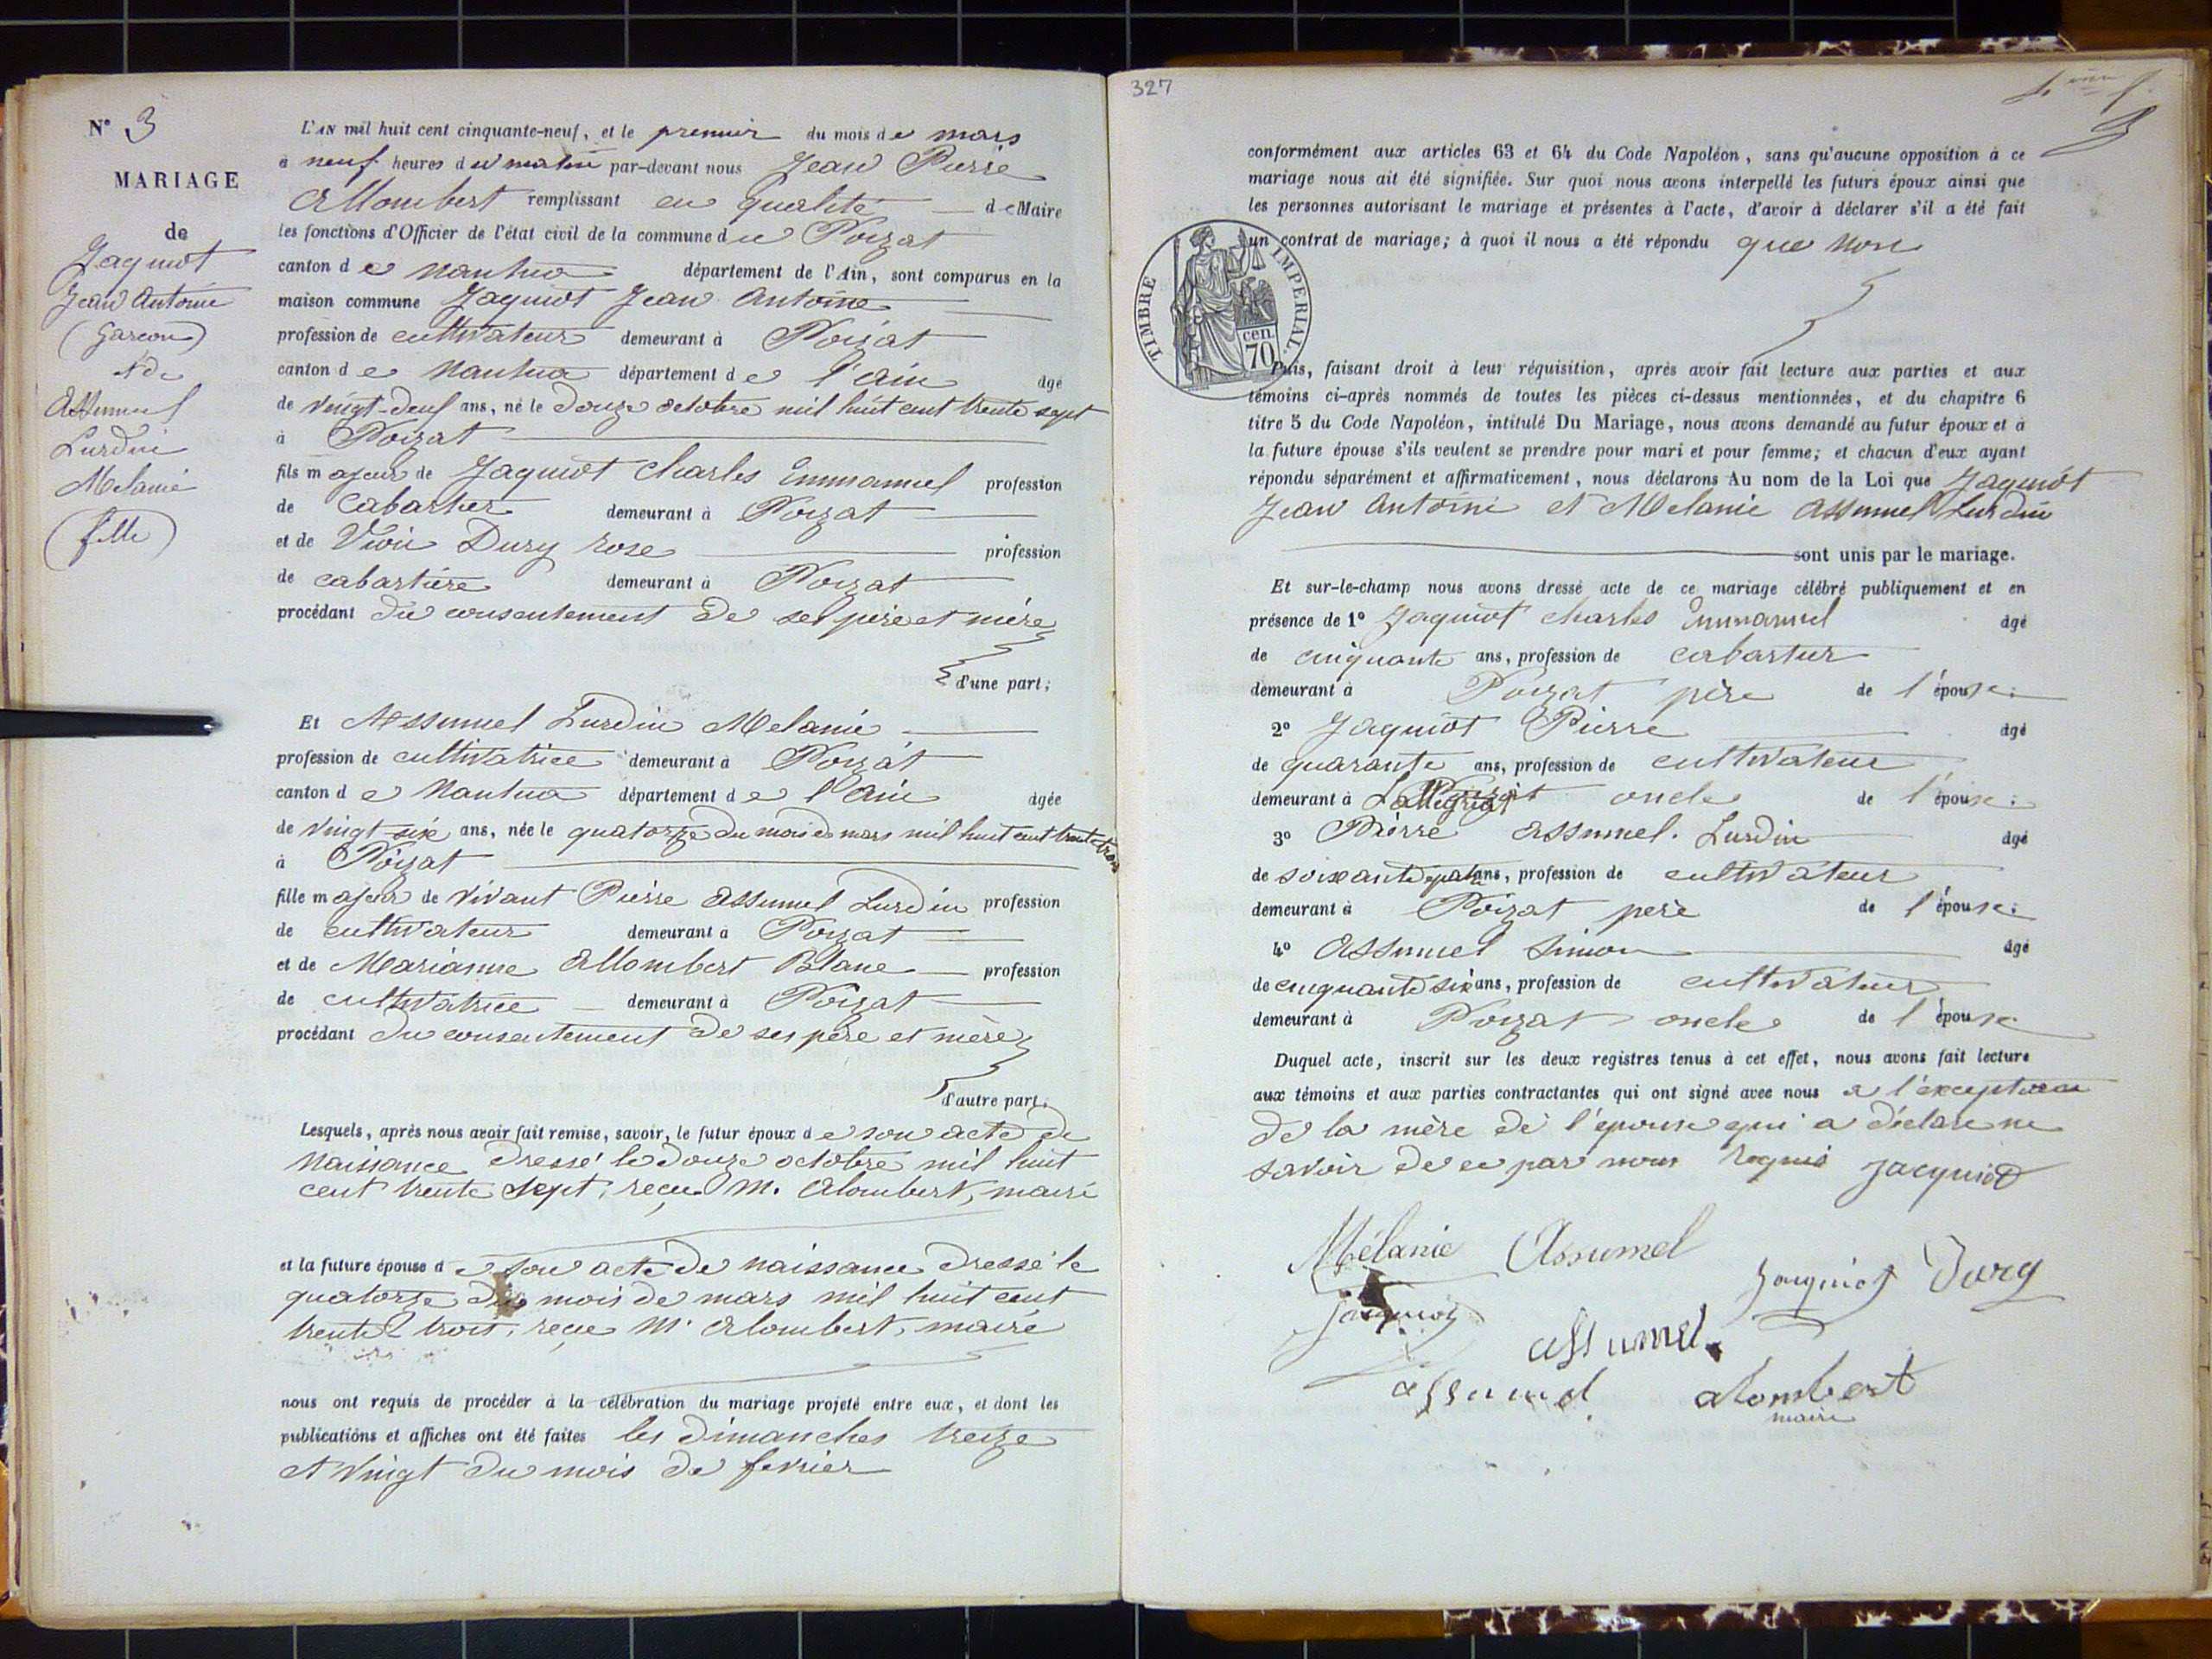 N° 3
MARIAGE
de
Jaquiot
Jean Antoine
(garçon)
& de
Assumel
Lurdin
Melanie
(fille)
L'AN mil huit cent cinquante-neuf, et le premier du mois de mars
à neuf heures du matin par-devant nous Jean Pierre
Allombert remplissant en qualité de Maire
les fonctions d'Officier de l'état civil de la commune du Poizat
canton de Nantua département de l'Ain, sont comparus en la
maison commune Jaquiot Jean Antoine
profession de cultivateur demeurant à Poizat
canton de Nantua département de l'ain âgé
de vingt-deux ans, né le douze octobre mil huit cent trente sept
à Poizat
fils majeur de Jaquiot Charles Emmanuel profession
de cabartier demeurant à Poizat
et de Vion Dury rose profession
de cabartière demeurant à Poizat
procédant du consentement de ses père et mère
d'une part;
Et Assumel Lurdin Melanie
profession de cultivatrice demeurant à Poizat
canton de Nantua département de l'Ain âgée
de vingt-six ans, née le quatorze du mois de mars mil huit cent trente trois
à Poizat
fille majeur de vivant Pierre Assumel Lurdin profession
de cultivateur demeurant à Poizat
et de Marianne Allombert Blanc profession
de cultivatrice demeurant à Poizat
procédant du consentement de ses père et mère
d'autre part.
Lesquels, après nous avoir fait remise, savoir, le futur époux de son acte de
naissance dressé le douze octobre mil huit
cent trente sept, reçu M. Alombert, maire
et la future épouse de son acte de naissance dressé le
quatorze du mois de mars mil huit cent
trente trois, reçue M. Alombert, maire
nous ont requis de procéder à la célébration du mariage projeté entre eux, et dont les
publications et affiches ont été faites les dimanches treize
et vingt du mois de fevrier
327
conformément aux articles 63 et 64 du Code Napoléon, sans qu'aucune opposition à ce
mariage nous ait été signifiée. Sur quoi nous avons interpellé les futurs époux ainsi que
les personnes autorisant le mariage et présentes à l'acte, d'avoir à déclarer s'il a été fait
un contrat de mariage; à quoi il nous a été répondu que non
TIMBRE IMPERIAL.
cen.
70
Puis, faisant droit à leur réquisition, après avoir fait lecture aux parties et aux
témoins ci-après nommés de toutes les pièces ci-dessus mentionnées, et du chapitre 6
titre 5 du Code Napoléon, intitulé Du Mariage, nous avons demandé au futur époux et à
la future épouse s'ils veulent se prendre pour mari et pour femme; et chacun d'eux ayant
répondu séparément et affirmativement, nous déclarons Au nom de la Loi que Jaquiot
Jean Antoine et Melanie Assumel Lurdin
sont unis par le mariage.
Et sur-le-champ nous avons dressé acte de ce mariage célébré publiquement et en
présence de 1° Jaquiot Charles Emmanuel âgé
de cinquante ans, profession de cabartier
demeurant à Poizat père de l'épouse;
2° Jaquiot Pierre âgé
de quarante ans, profession de cultivateur
demeurant à oncle de l'épouse;
3° Pierre Assumel Lurdin âgé
de soixante quatre ans, profession de cultivateur
demeurant à Poizat père de l'épouse;
4° Assumel Simon âgé
de cinquante six ans, profession de cultivateur
demeurant à Poizat oncle de l'épouse
Duquel acte, inscrit sur les deux registres tenus à cet effet, nous avons fait lecture
aux témoins et aux parties contractantes qui ont signé avec nous a l'exception
de la mère de l'épouse qui a déclaré ne
savoir de ce par nous requis Jacquiot
Mélanie Assumel
Jaquiot Dury
Jaquiot
assumel
assumel alombert
maire